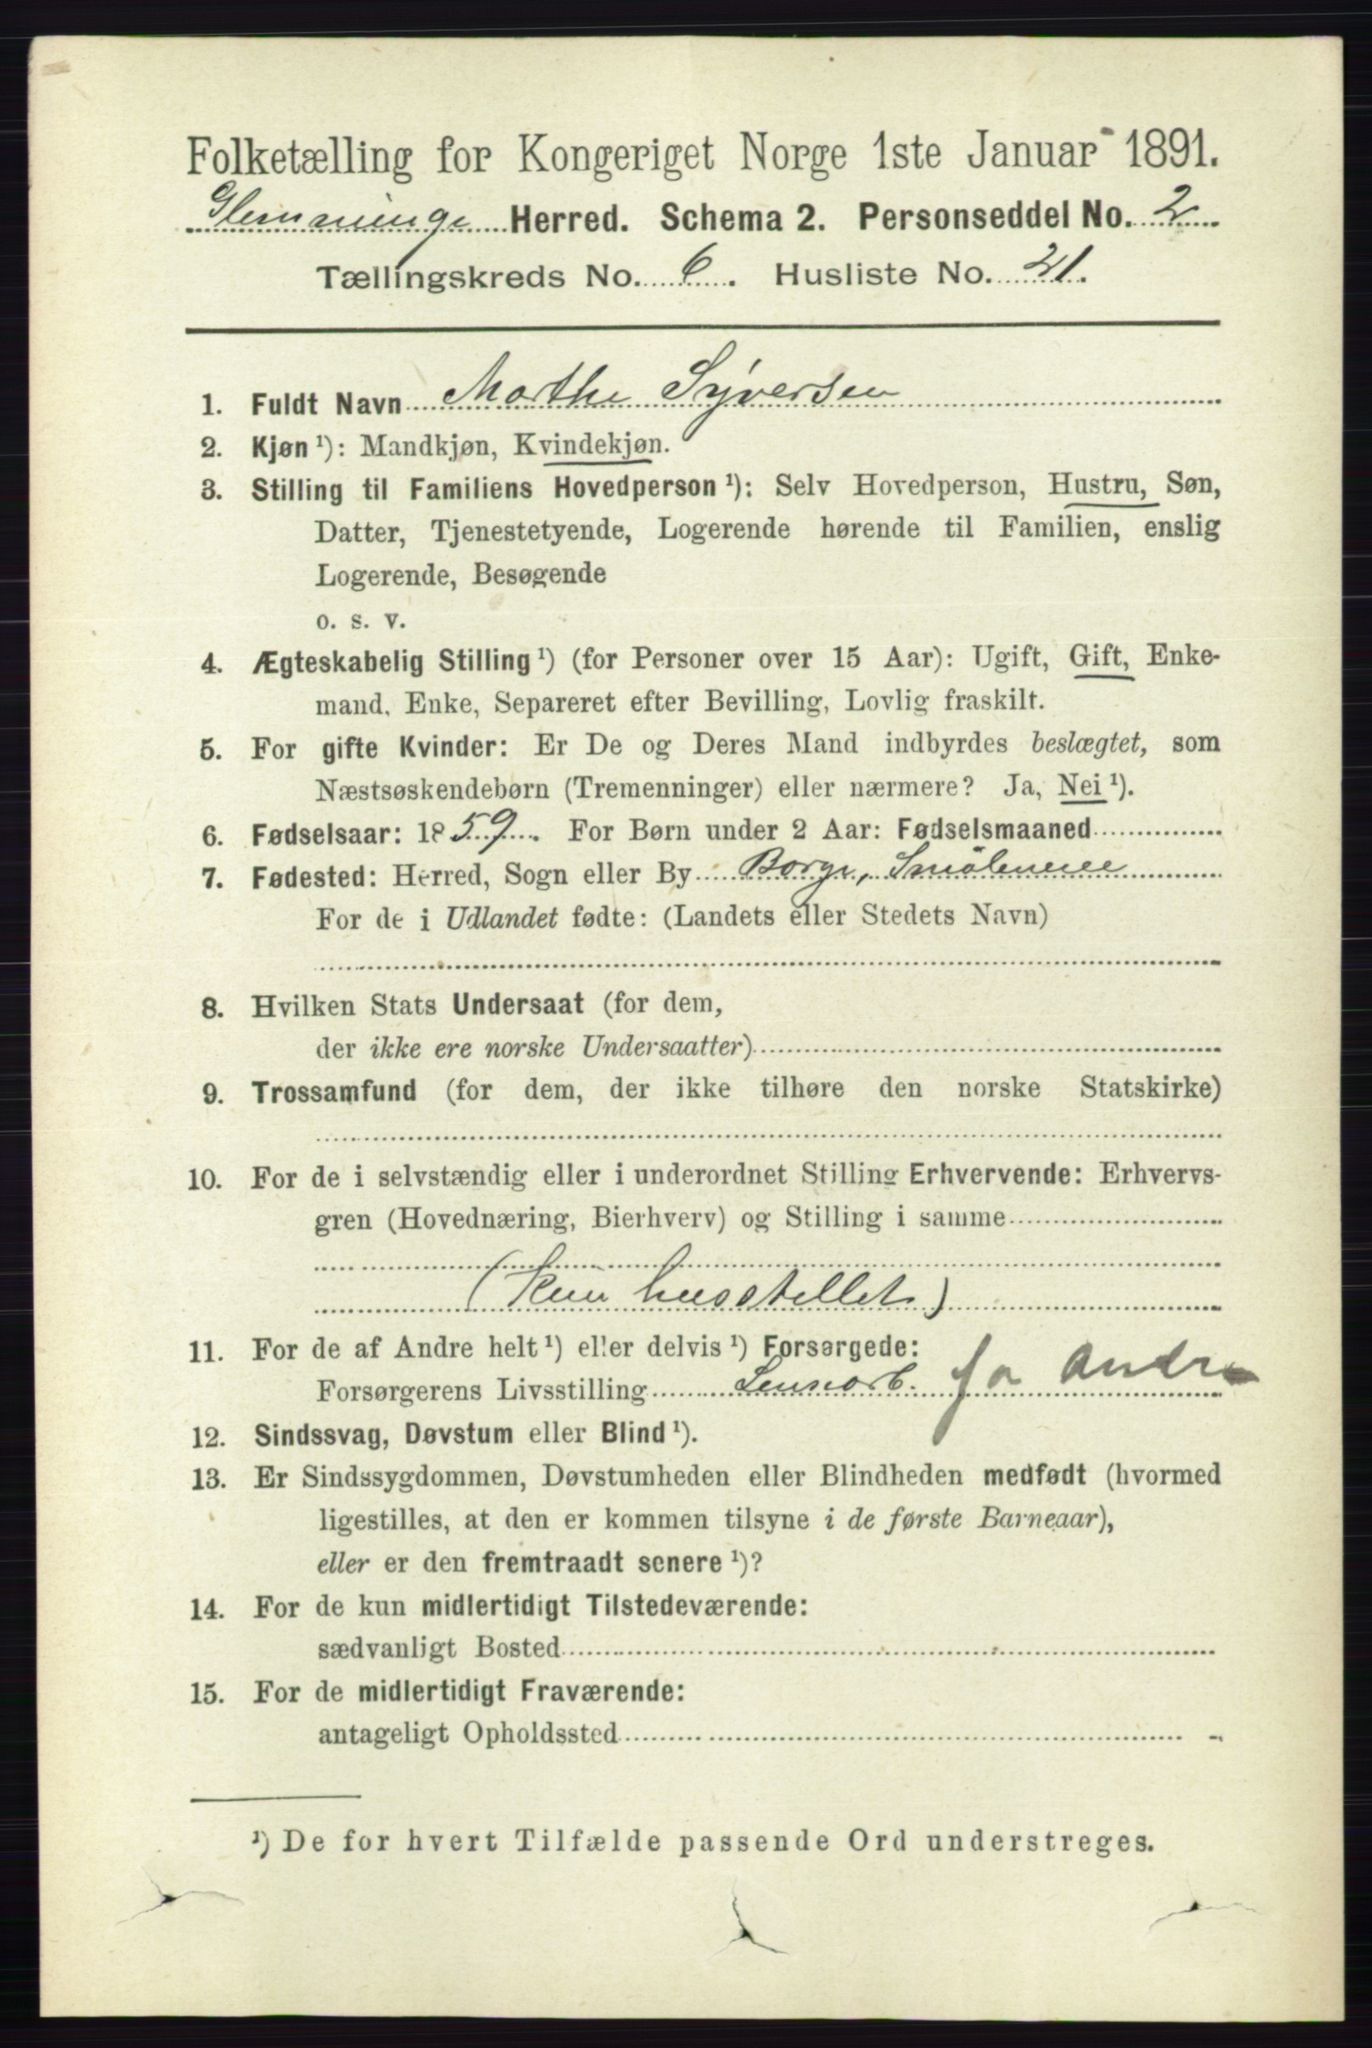 Folketælling for Kongeriget Norge 1ste Januar 1891.
Glemminge Herred. Schema 2. Personseddel No. 2
Tællingskreds No. 6. Husliste No. 21.
1. Fuldt Navn Marthe Syversen
2. Kjøn ¹): Mandkjøn, Kvindekjøn.
3. Stilling til Familiens Hovedperson ¹): Selv Hovedperson, Hustru, Søn,
Datter, Tjenestetyende, Logerende hørende til Familien, enslig
Logerende, Besøgende
o. s. v.
4. Ægteskabelig Stilling ¹) (for Personer over 15 Aar): Ugift, Gift, Enke-
mand, Enke, Separeret efter Bevilling, Lovlig fraskilt.
5. For gifte Kvinder: Er De og Deres Mand indbyrdes beslægtet, som
Næstsøskendebørn (Tremenninger) eller nærmere? Ja, Nei ¹).
6. Fødselsaar: 1859. For Børn under 2 Aar: Fødselsmaaned
7. Fødested: Herred, Sogn eller By Borge, Smålenene
For de i Udlandet fødte: (Landets eller Stedets Navn)
8. Hvilken Stats Undersaat (for dem,
der ikke ere norske Undersaatter)
9. Trossamfund (for dem, der ikke tilhøre den norske Statskirke)
10. For de i selvstændig eller i underordnet Stilling Erhvervende: Erhvervs-
gren (Hovednæring, Bierhverv) og Stilling i samme
(Kun husstellet)
11. For de af Andre helt ¹) eller delvis ¹) Forsørgede:
Forsørgerens Livsstilling
12. Sindssvag, Døvstum eller Blind ¹).
13. Er Sindssygdommen, Døvstumheden eller Blindheden medfødt (hvormed
ligestilles, at den er kommen tilsyne i de første Barneaar),
eller er den fremtraadt senere ¹)?
14. For de kun midlertidigt Tilstedeværende:
sædvanligt Bosted
15. For de midlertidigt Fraværende:
antageligt Opholdssted
¹) De for hvert Tilfælde passende Ord understreges.